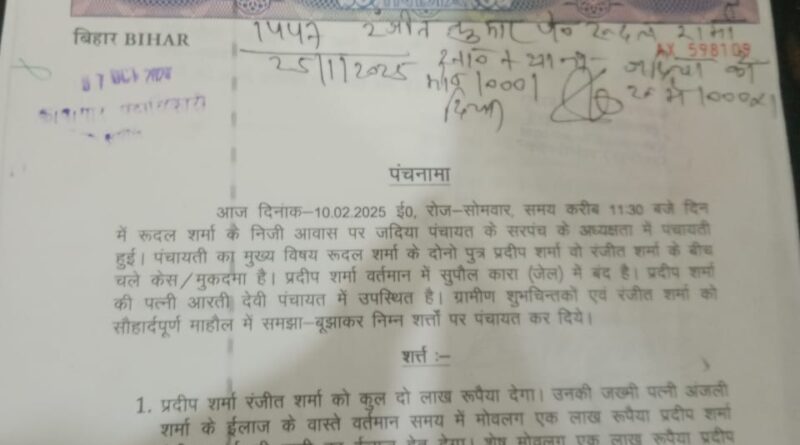 बिहार BIHAR
1447 रंजीत कुमार रूदल शर्मा
AX 598109
25/1/2025
पंचनामा
आज दिनांक–10.02.2025 ई0, रोज–सोमवार, समय करीब 11:30 बजे दिन
में रूदल शर्मा के निजी आवास पर जदिया पंचायत के सरपंच के अध्यक्षता में पंचायती
हुई। पंचायती का मुख्य विषय रूदल शर्मा के दोनो पुत्र प्रदीप शर्मा वो रंजीत शर्मा के बीच
चले केस/मुकदमा है। प्रदीप शर्मा वर्तमान में सुपौल कारा (जेल) में बंद है। प्रदीप शर्मा
की पत्नी आरती देवी पंचायत में उपस्थित है। ग्रामीण शुभचिन्तकों एवं रंजीत शर्मा को
सौहार्दपूर्ण माहौल में समझा–बूझाकर निम्न शर्त्तो पर पंचायत कर दिये।
शर्त्त :–
1. प्रदीप शर्मा रंजीत शर्मा को कुल दो लाख रूपैया देगा। उनकी जख्मी पत्नी अंजली
शर्मा के ईलाज के वास्ते वर्तमान समय में मोवलग एक लाख रूपैया प्रदीप शर्मा